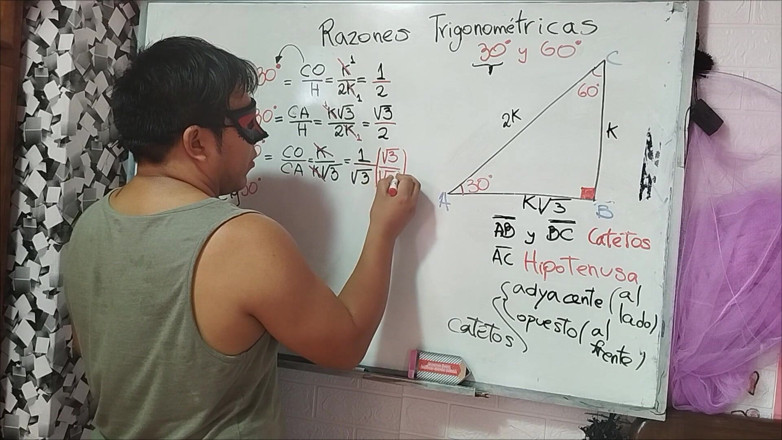 Razones Trigonométricas
30° y 60°
30° = CO/H = K/2K = 1/2
30° = CA/H = K√3/2K = √3/2
CO/CA = K/K√3 = 1/√3 (√3
C
60°
2K
K
A
30°
K√3
B
AB y BC Catetos
AC Hipotenusa
Catetos { adyacente (al lado)
opuesto (al frente)